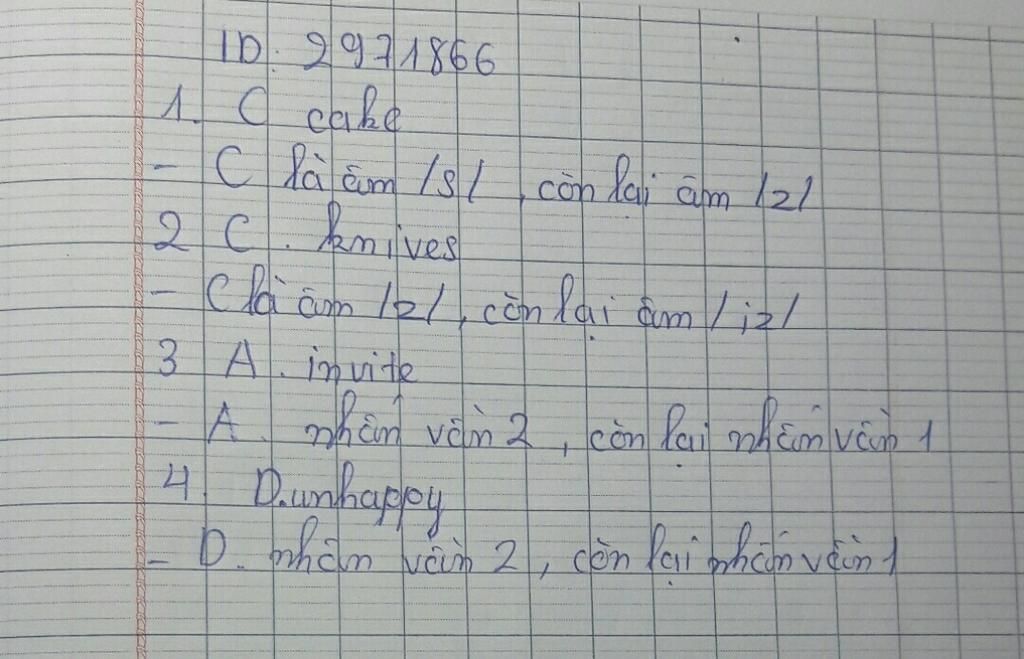 ID: 2971866
1. C cake
- C là âm /s/, còn lại âm /z/
2 C. knives
- C là âm /z/, còn lại âm /iz/
3 A. invite
- A. nhấn vần 2, còn lại nhấn vần 1
4 D. unhappy
- D. nhấn vần 2, còn lại nhấn vần 1